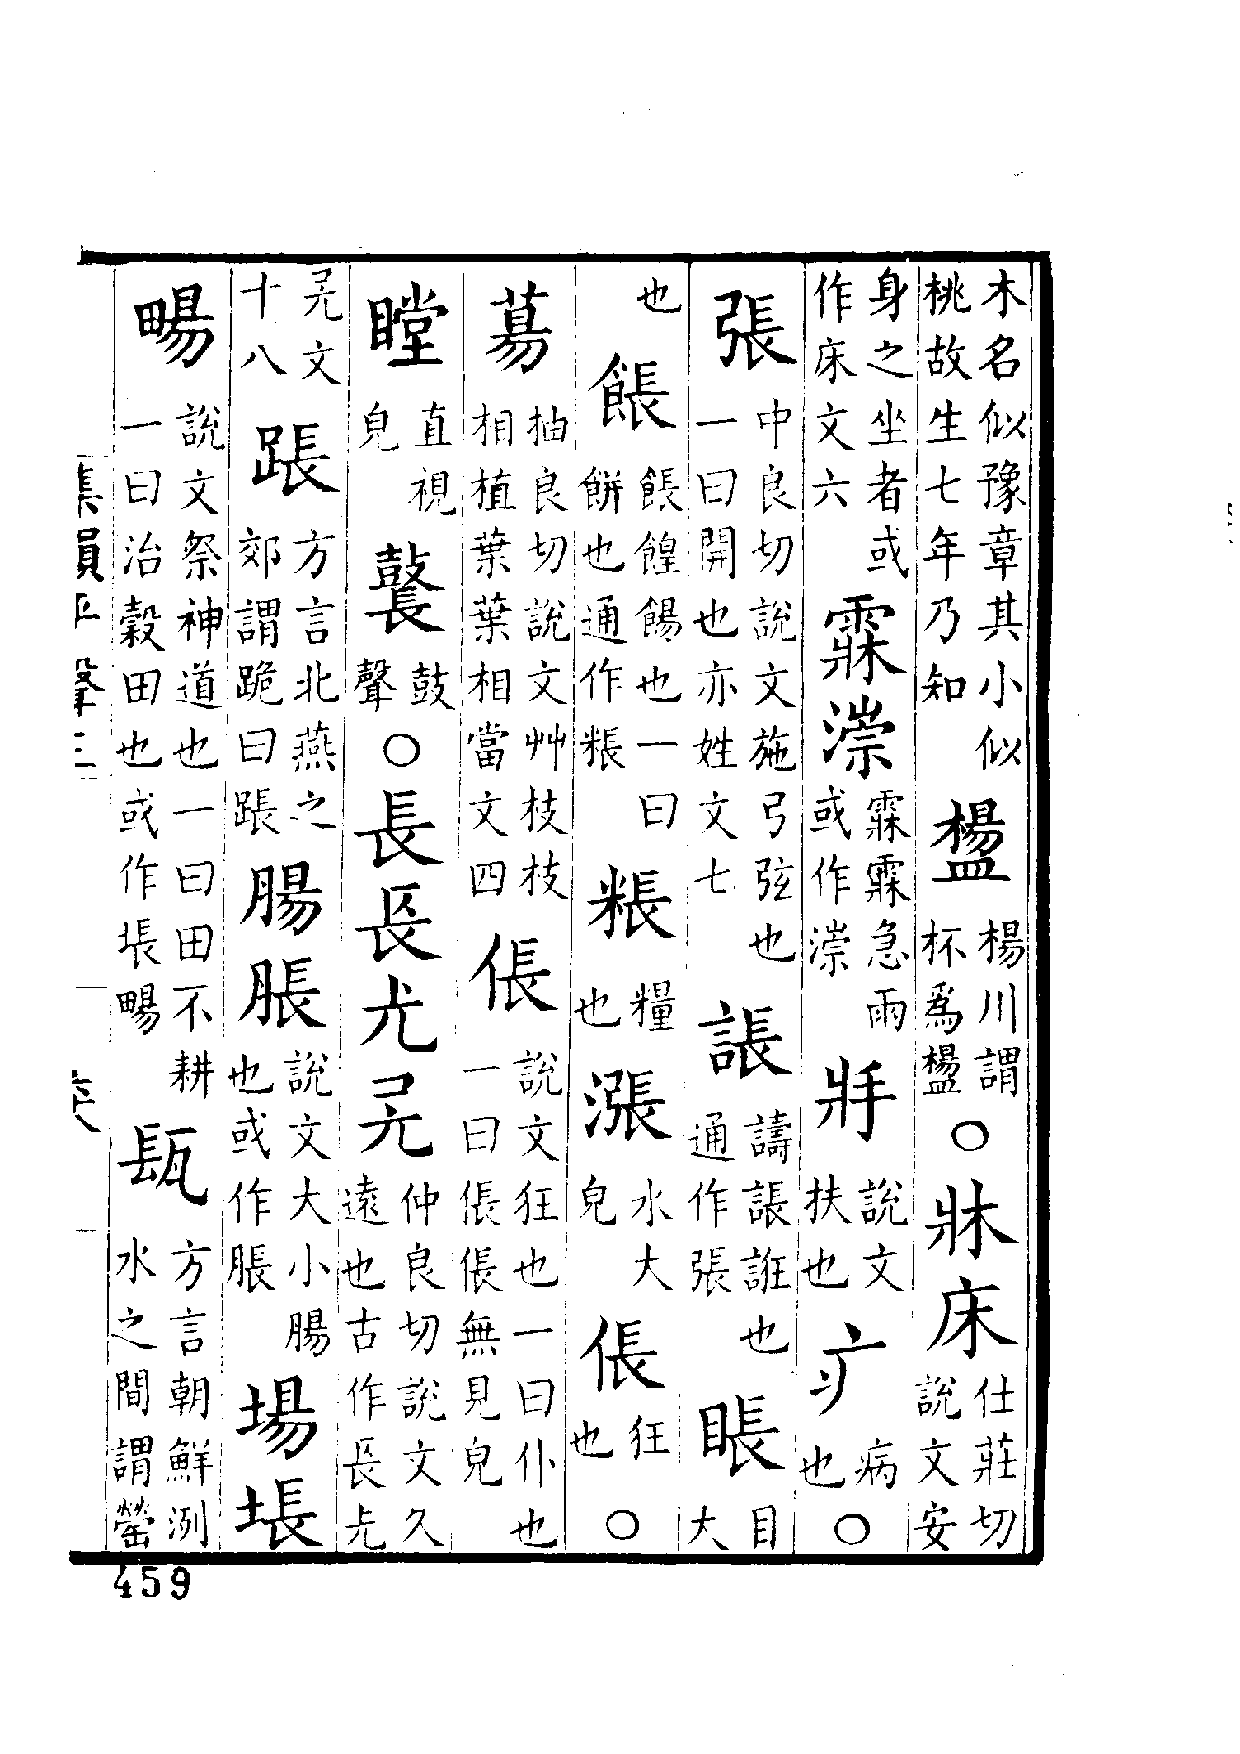 木名似豫章其小似桃故生七年乃知 楊川謂杯爲㯹〇牀床仕莊切說文安
身之坐者或作床文六霖漴霖霖急雨或作漴 牂說文扶也疒病也〇
張中良切說文施弓弦也一曰開也亦姓文七譸譸張誑也通作張䀶目大
也餦餦餭餳也一曰餅也通作粻粻糧也漲水大皃倀狂也〇
募抽良切說文艸枝枝相植葉葉相當文四倀說文狂也一曰仆也一曰倀倀無見皃
瞠直視皃鼚鼓聲〇長仲良切說文久遠也古作
文十八䠆方言北燕之郊謂跪曰䠆腸脹說文大小腸也或作脹場塲
畼說文祭神道也一曰田不耕一曰治穀田也或作塲畼瓺方言朝鮮洌水之間謂罃
集韻平聲三
459